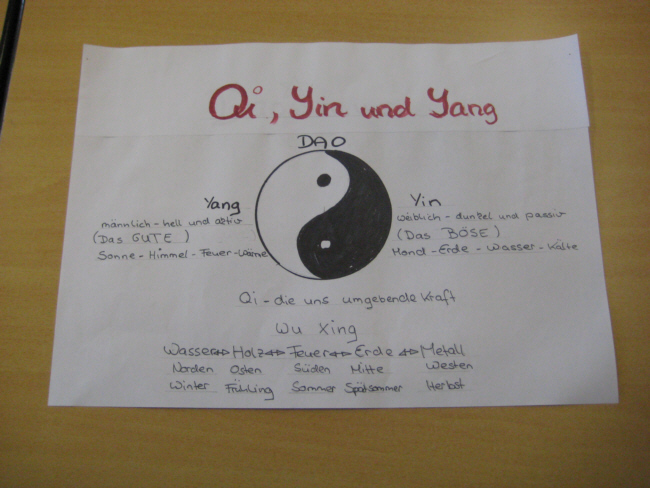 Qi, Yin und Yang
DAO
Yang
männlich - hell und aktiv
(Das GUTE )
Sonne - Himmel - Feuer - Wärme
Yin
weiblich - dunkel und passiv
(Das BÖSE)
Mond - Erde - Wasser - Kälte
Qi - die uns umgebende Kraft
Wu Xing
Wasser ↔ Holz ↔ Feuer ↔ Erde ↔ Metall
Norden Osten Süden Mitte Westen
Winter Frühling Sommer Spätsommer Herbst